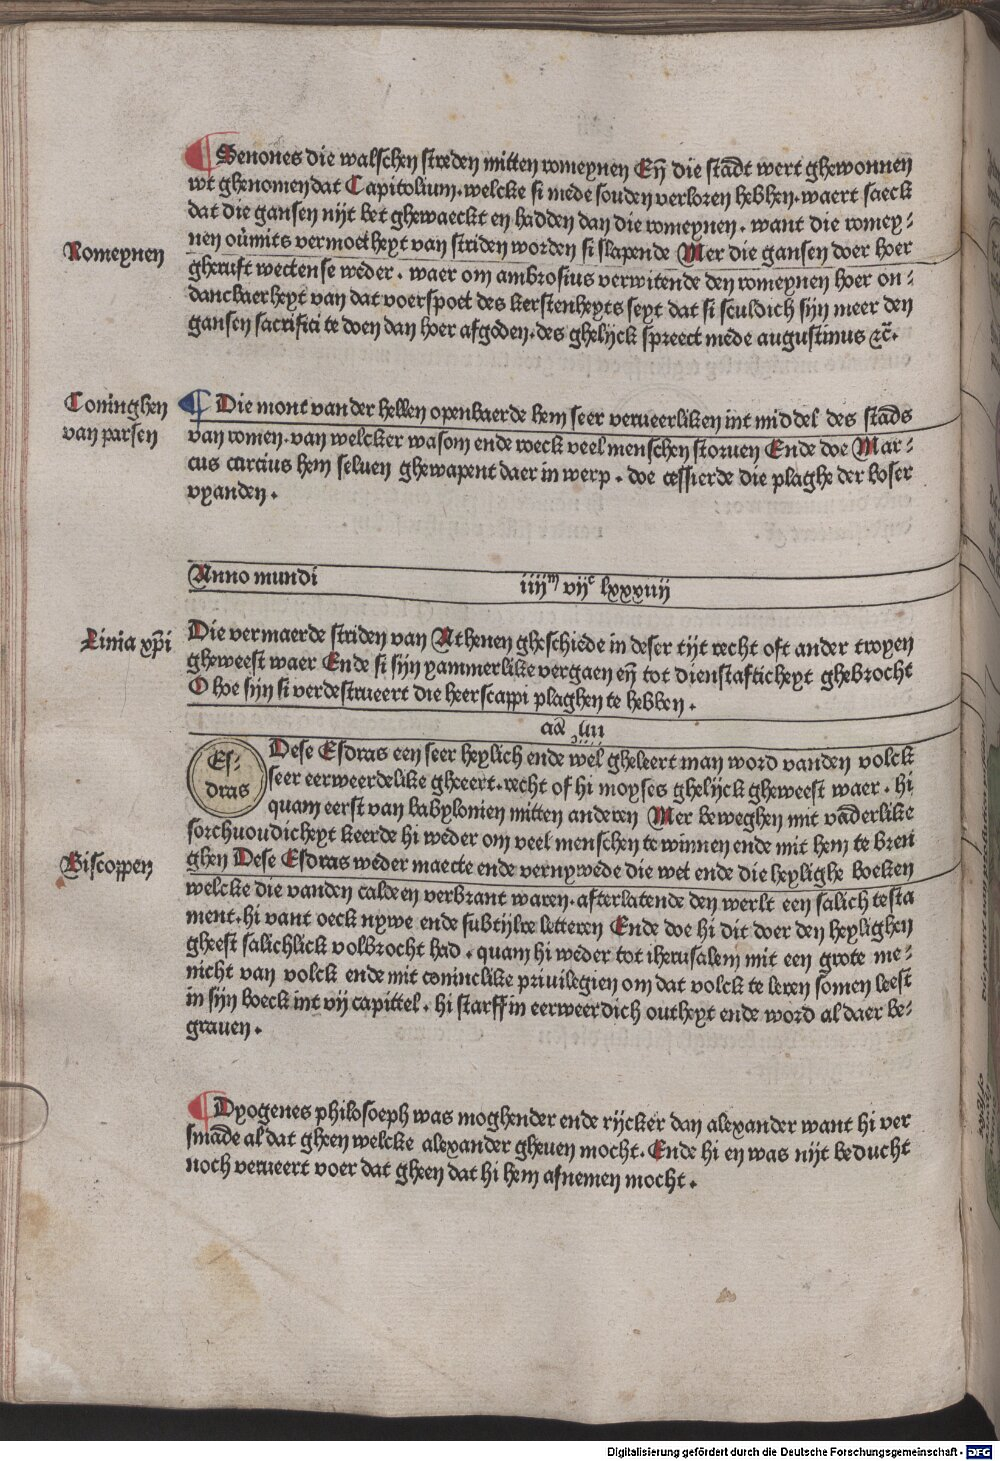 ¶ Senones die walschen streden mitten romeynen Eñ die stādt wert ghewonnen
wt ghenomen dat Capitolium. welcke si mede souden verloren hebben. waert saeck
dat die gansen nijt bet ghewaeckt en hadden dan die romeynen. want die romey⸗
Romeynen
nen oūmits vermoetheyt van striden worden si slapende Mer die gansen doer hoer
gheruft wectense weder. waer om ambrosius verwitende den romeynen hoer on⸗
danckaerheyt van dat voerspoet des kerstenheyts seyt dat si sculdich sijn meer den
gansen sacrifici te doen dan hoer afgoden. des ghelijck spreect mede augustinus ⁊c̄.
Coninghen
van parsen
¶ Die mont van der hellen openbaerde hem seer verueerliken int middel des stads
van romen. van welcker wasom ende roeck veel menschen storuen Ende doe Mar⸗
cus curcius hem seluen ghewapent daer in werp. doe cessierde die plaghe der boser
vyanden.
Anno mundi iiijᵐ vijᶜ lxxxiiij
Linia xp̄i
Die vermaerde striden van Athenen gheschiede in deser tijt recht oft ander troyen
gheweest waer Ende si sijn yammerlike vergaen eñ tot dienstafticheyt ghebrocht
O hoe sijn si verdestrueert die heerscappi plaghen te hebben.
Es⸗
dras
Dese Esdras een seer heylich ende wel gheleert man word vanden volck
seer eerweerdelike gheeert. recht of hi moyses ghelijck gheweest waer. hi
quam eerst van babylonien mitten anderen Mer beweghen mit vāderlike
sorchuoudicheyt keerde hi weder om veel menschen te winnen ende mit hem te bren
Biscoppen
ghen Dese Esdras weder maecte ende vernywede die wet ende die heylighe boeken
welcke die vanden caldeen verbrant waren. afterlatende den werlt een salich testa
ment. hi vant oeck nywe ende subtijlre letteren Ende doe hi dit doer den heylighen
gheest salichlick volbrocht had. quam hi weder tot iherusalem mit een grote me⸗
nicht van volck ende mit coninclike priuilegien om dat volck te leren somen leest
in sijn boeck int vij capittel. hi starff in eerweerdich outheyt ende word al daer be⸗
grauen.
¶ Dyogenes philosoeph was moghender ende rijcker dan alexander want hi ver
smade al dat gheen welcke alexander gheuen mocht. Ende hi en was nijt beducht
noch verueert voer dat gheen dat hi hem afnemen mocht.
Digitalisierung gefördert durch die Deutsche Forschungsgemeinschaft - DFG